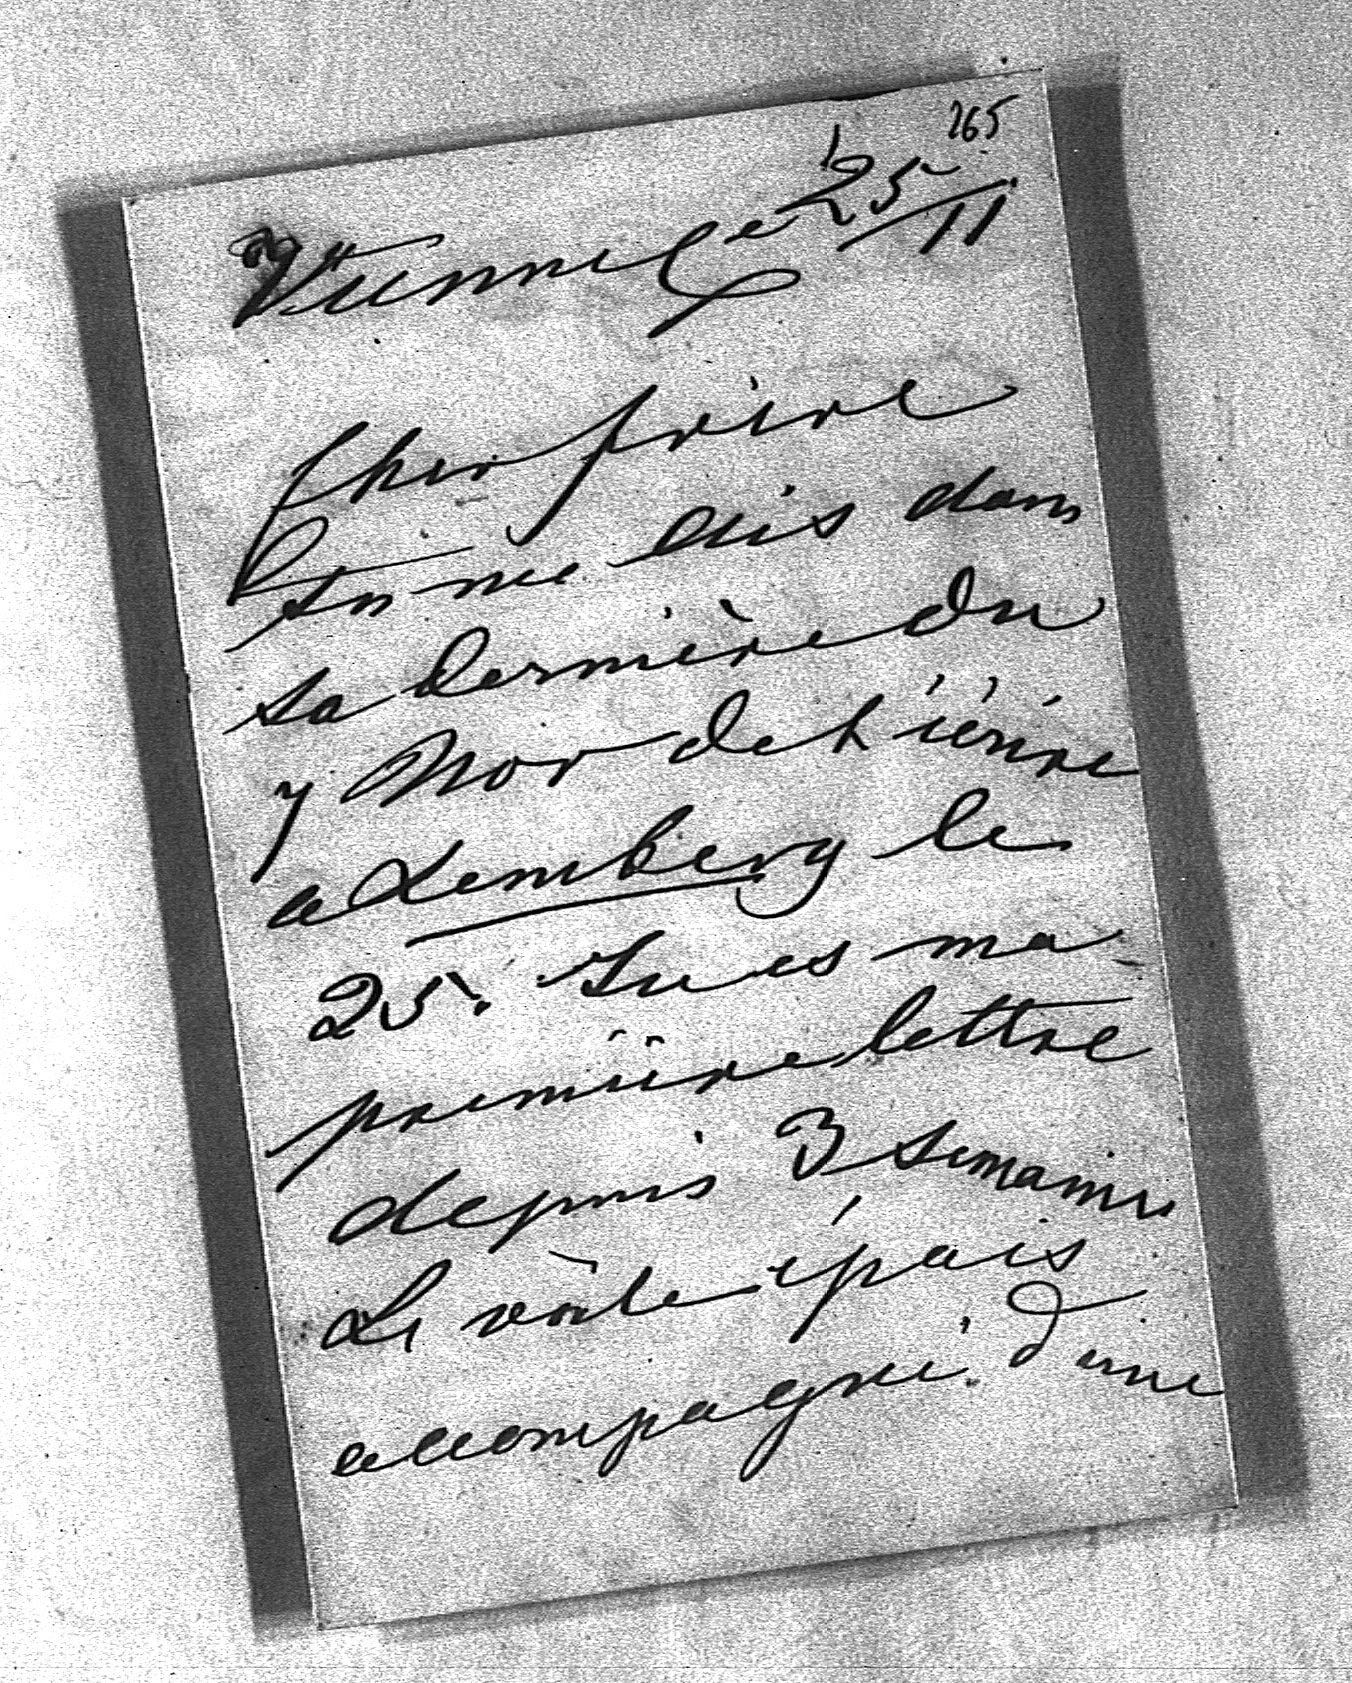 265
Vienne le 25/11
Cher frère
tu me dis dans
ta dernière du
7 Nov de t'écrire
a Lemberg le
25. Tu es ma
première lettre
depuis 3 semaines
Le voile épais
accompagné d'une